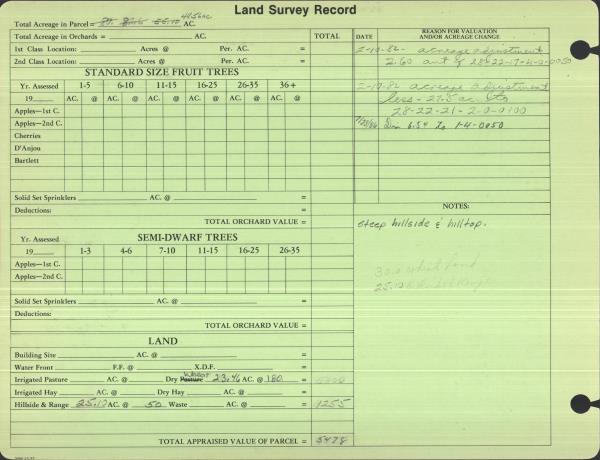 Land Survey Record
Total Acreage in Parcel = AC.
Total Acreage in Orchards = AC. TOTAL
1st Class Location: Acres @ Per. AC. =
2nd Class Location: Acres @ Per. AC. =
STANDARD SIZE FRUIT TREES
Yr. Assessed 1-5 6-10 11-15 16-25 26-35 36+
19 AC. @ AC. @ AC. @ AC. @ AC. @ AC. @
Apples—1st C.
Apples—2nd C.
Cherries
D'Anjou
Bartlett
Solid Set Sprinklers AC. @ =
Deductions: =
TOTAL ORCHARD VALUE =
SEMI-DWARF TREES
Yr. Assessed
19 1-3 4-6 7-10 11-15 16-25 26-35
Apples—1st C.
Apples—2nd C.
Solid Set Sprinklers AC. @ =
Deductions:
TOTAL ORCHARD VALUE =
LAND
Building Site AC. @ =
Water Front F.F. @ X.D.F. =
Irrigated Pasture AC. @ Dry Pasture Wheat 23.46 AC. @ 180 =
Irrigated Hay AC. @ Dry Hay AC. @ =
Hillside & Range 25.10 AC. @ 50 Waste AC. @ = 1255
TOTAL APPRAISED VALUE OF PARCEL = 5478
DATE REASON FOR VALUATION
AND/OR ACREAGE CHANGE
2-10-82 - acreage adjustment
2.60 out of 28-22-17-4-0-0050
2-10-82 acreage adjustment
less - 27.5 ac to
28-22-21-2-0-0100
6.54 1-4-0050
NOTES:
steep hillside & hilltop.